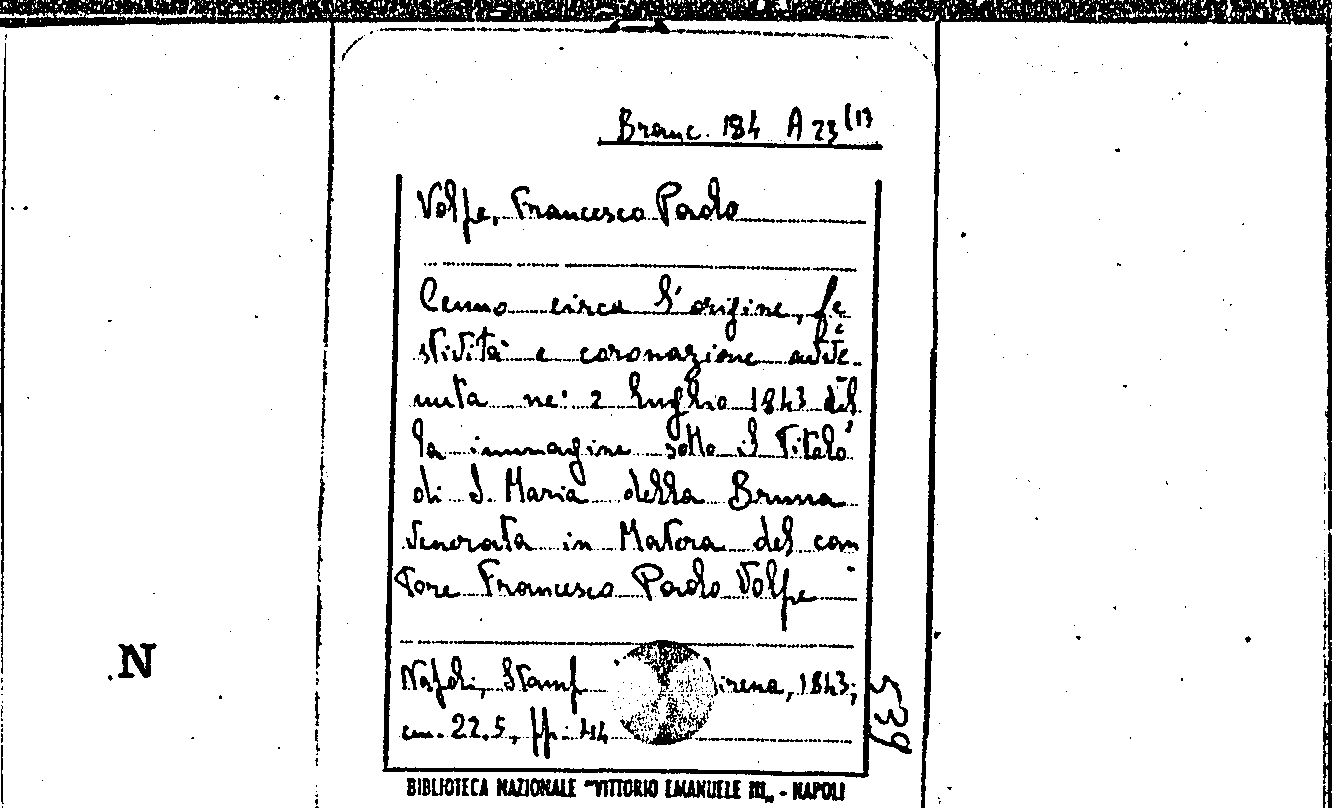 Branc. 184 A 23(13
Volpe, Francesco Paolo
Cenno circa l'origine, fe
stività e coronazione avve
nuta ne' 2 luglio 1843 del
la immagine sotto il titolo
di S. Maria della Bruna
venerata in Matera del can
tore Francesco Paolo Volpe
Napoli, Stamp irena, 1843;
cm. 22.5, pp. 44
539
N
BIBLIOTECA NAZIONALE "VITTORIO EMANUELE III„ - NAPOLI